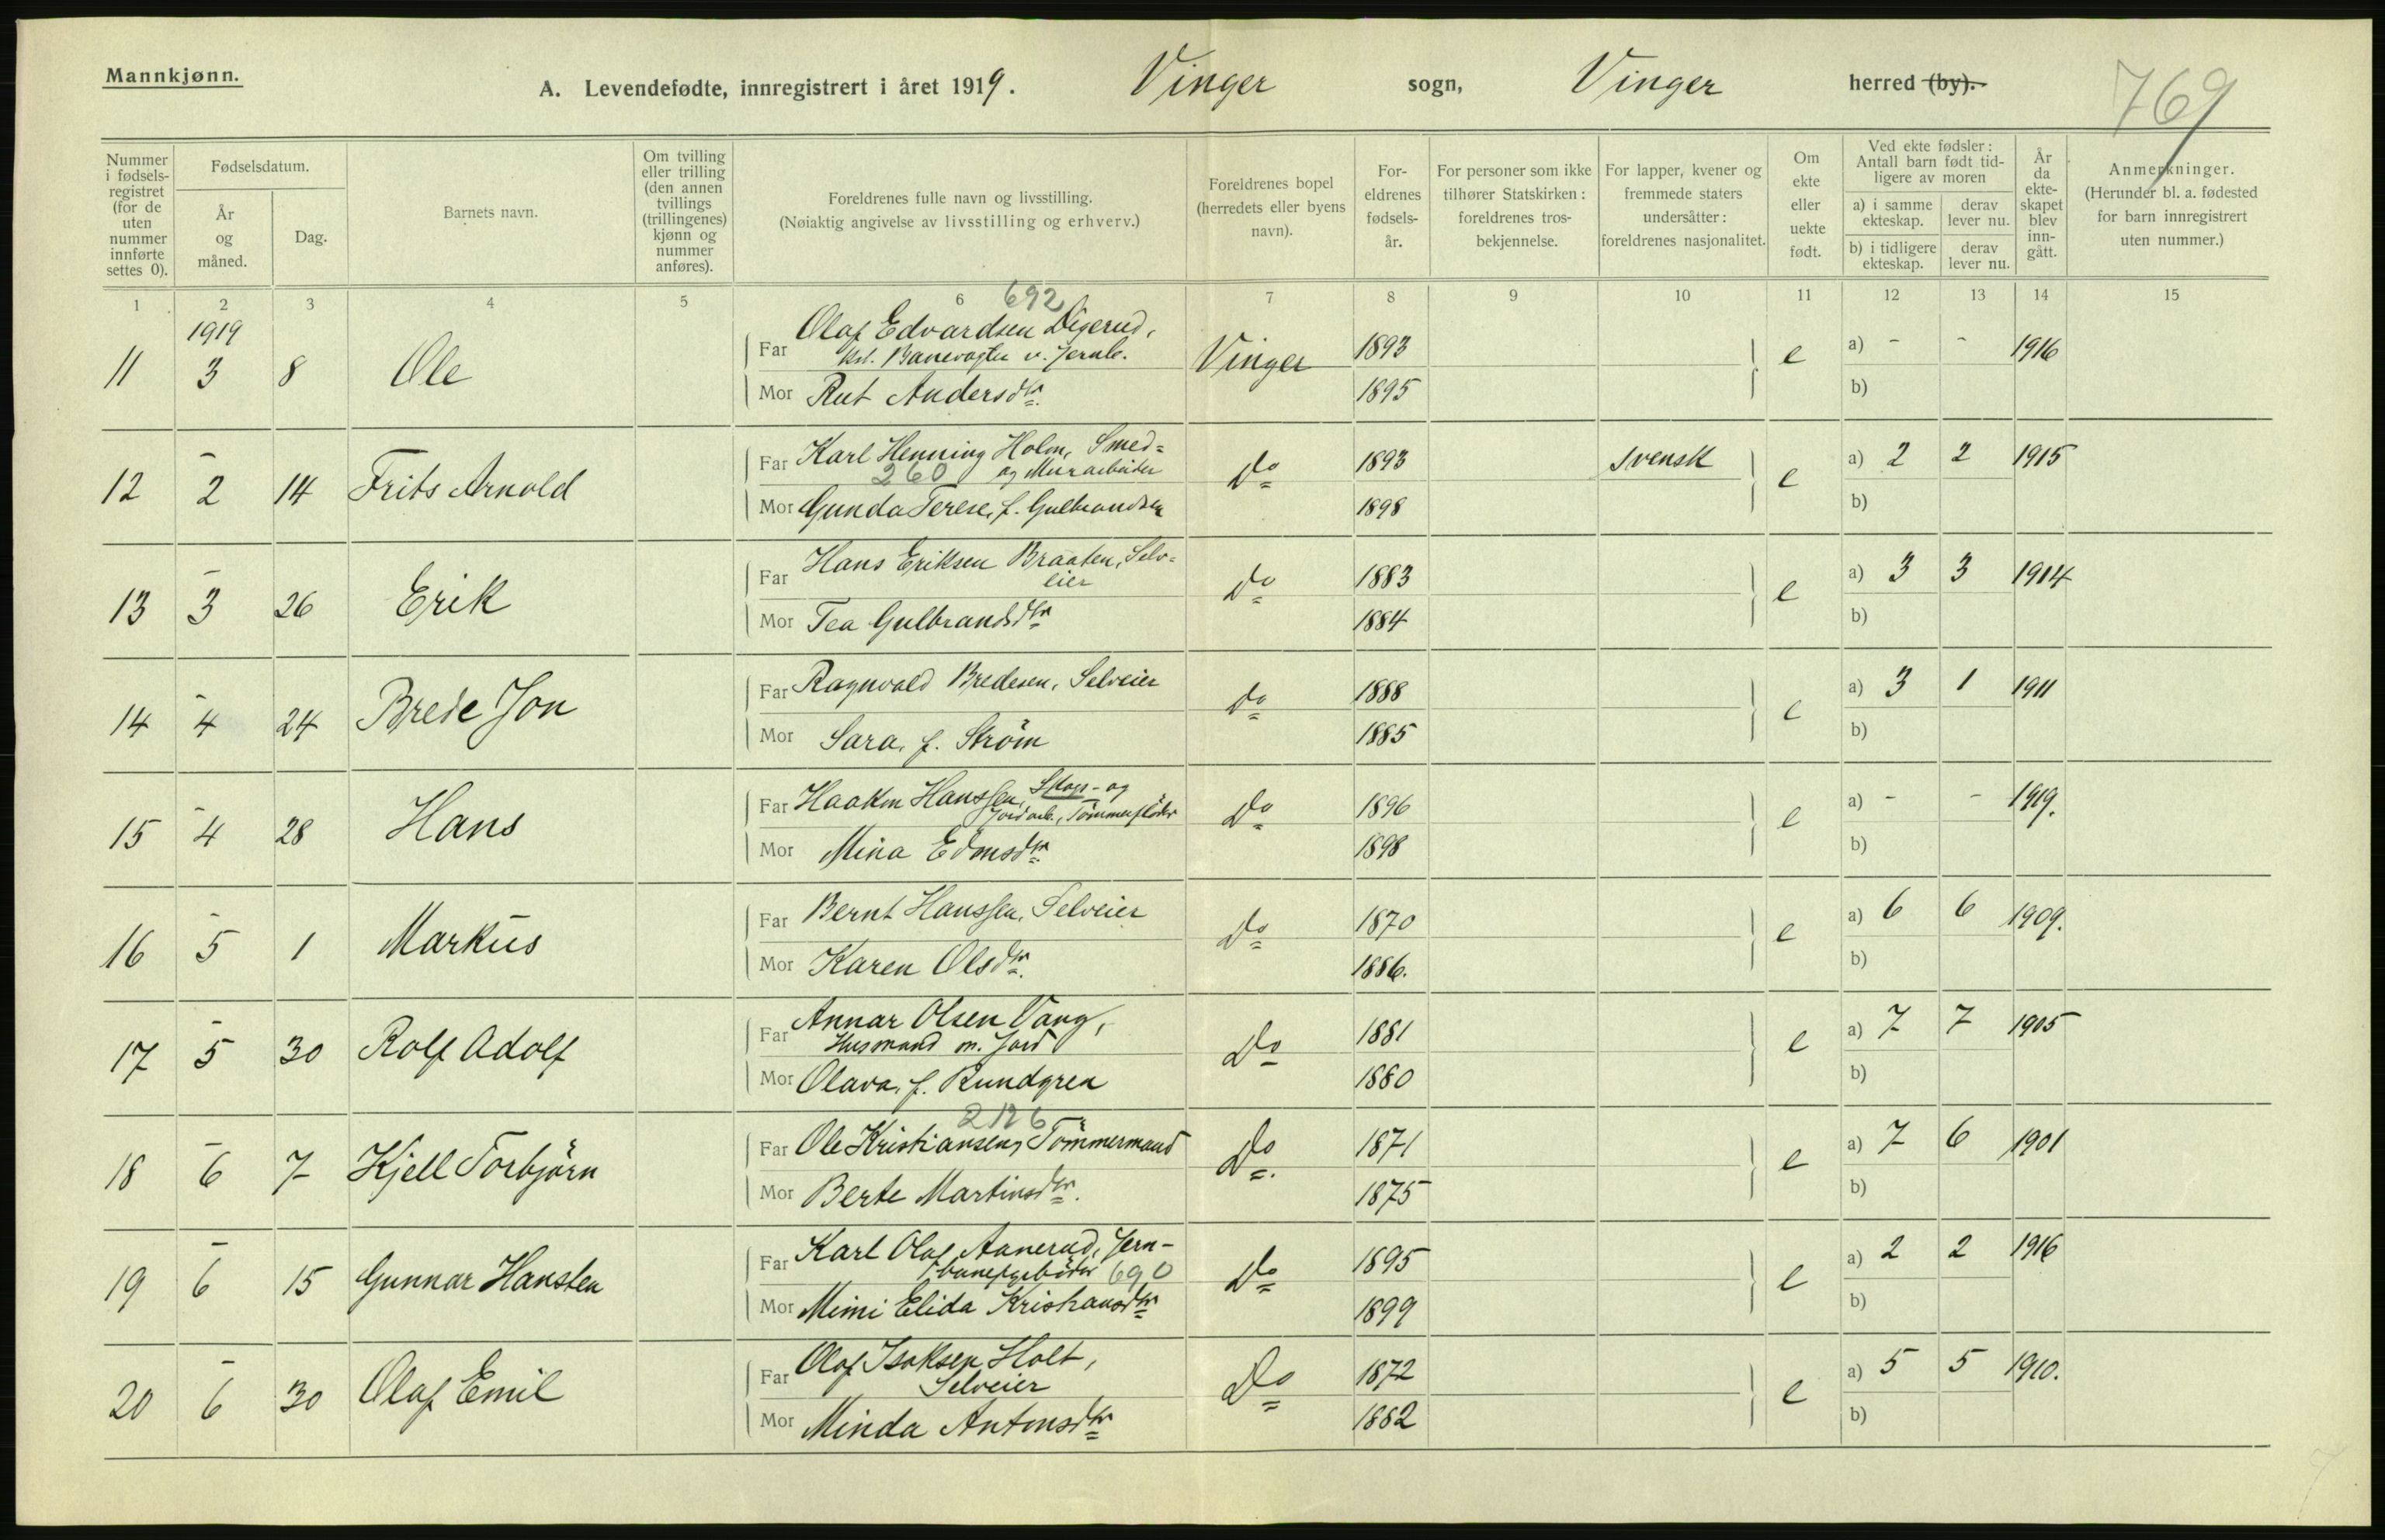 Mannkjønn.
A. Levendefødte, innregistrert i året 1919. Vinger sogn, Vinger herred (by).
769
Nummer i fødsels-registret (for de uten nummer innførte settes 0).
Fødselsdatum.
År og måned.
Dag.
Barnets navn.
Om tvilling eller trilling (den annen tvillings (trillingenes) kjønn og nummer anføres).
Foreldrenes fulle navn og livsstilling.
(Nøiaktig angivelse av livsstilling og erhverv.)
Foreldrenes bopel (herredets eller byens navn).
For-eldrenes fødsels-år.
For personer som ikke tilhører Statskirken: foreldrenes tros-bekjennelse.
For lapper, kvener og fremmede staters undersåtter: foreldrenes nasjonalitet.
Om ekte eller uekte født.
Ved ekte fødsler: Antall barn født tid-ligere av moren
a) i samme ekteskap. derav lever nu.
b) i tidligere ekteskap. derav lever nu.
År da ekte-skapet blev inn-gått.
Anmerkninger.
(Herunder bl. a. fødested for barn innregistrert uten nummer.)
1 2 3 4 5 6 7 8 9 10 11 12 13 14 15
692
1919
11 3 8 Ole
Far Olaf Edvardsen Digerud,
Banevogter v. Jernb.
Vinger 1893 e a) - - 1916
Mor Rut Andersdtr. 1895 b)
12 - 2 14 Frits Arnold
Far Karl Henning Holm, Smed=
260 og Murarbeider
Do 1893 svensk e a) 2 2 1915
Mor Gunda Terese, f. Gulbrandsen 1898 b)
13 - 3 26 Erik
Far Hans Eriksen Braaten, Selv=
eier
Do 1883 e a) 3 3 1914
Mor Tea Gulbrandsdtr 1884 b)
14 - 4 24 Brede Jon
Far Ragnvald Bredesen, Selveier
Do 1888 e a) 3 1 1911
Mor Sara, f. Strøm 1885 b)
15 - 4 28 Hans
Far Haakon Hanssen, Skogs- og
Jordarb., Tømmerfløder
Do 1896 e a) - - 1919.
Mor Mina Edmsdtr 1898 b)
16 - 5 1 Markus
Far Bernt Hanssen, Selveier
Do 1870 e a) 6 6 1909.
Mor Karen Olsdtr. 1886. b)
17 - 5 30 Rolf Adolf
Far Annar Olsen Vang,
Husmand m. Jord
Do 1881 e a) 7 7 1905
Mor Olava, f. Rundgren 1880 b)
2126
18 - 6 7 Kjell Torbjörn
Far Ole Kristiansen, Tömmermand
Do. 1871 e a) 7 6 1901
Mor Berte Martinsdtr. 1875 b)
19 - 6 15 Gunnar Hansten
Far Karl Olaf Aanerud, Jern-
banearbeider 690
Do 1895 e a) 2 2 1916
Mor Mimi Elida Kristiansdtr 1899 b)
20 - 6 30 Olaf Emil
Far Olaf Isaksen Holt,
Selveier
Do 1872 e a) 5 5 1910.
Mor Minda Antonsdtr 1882 b)